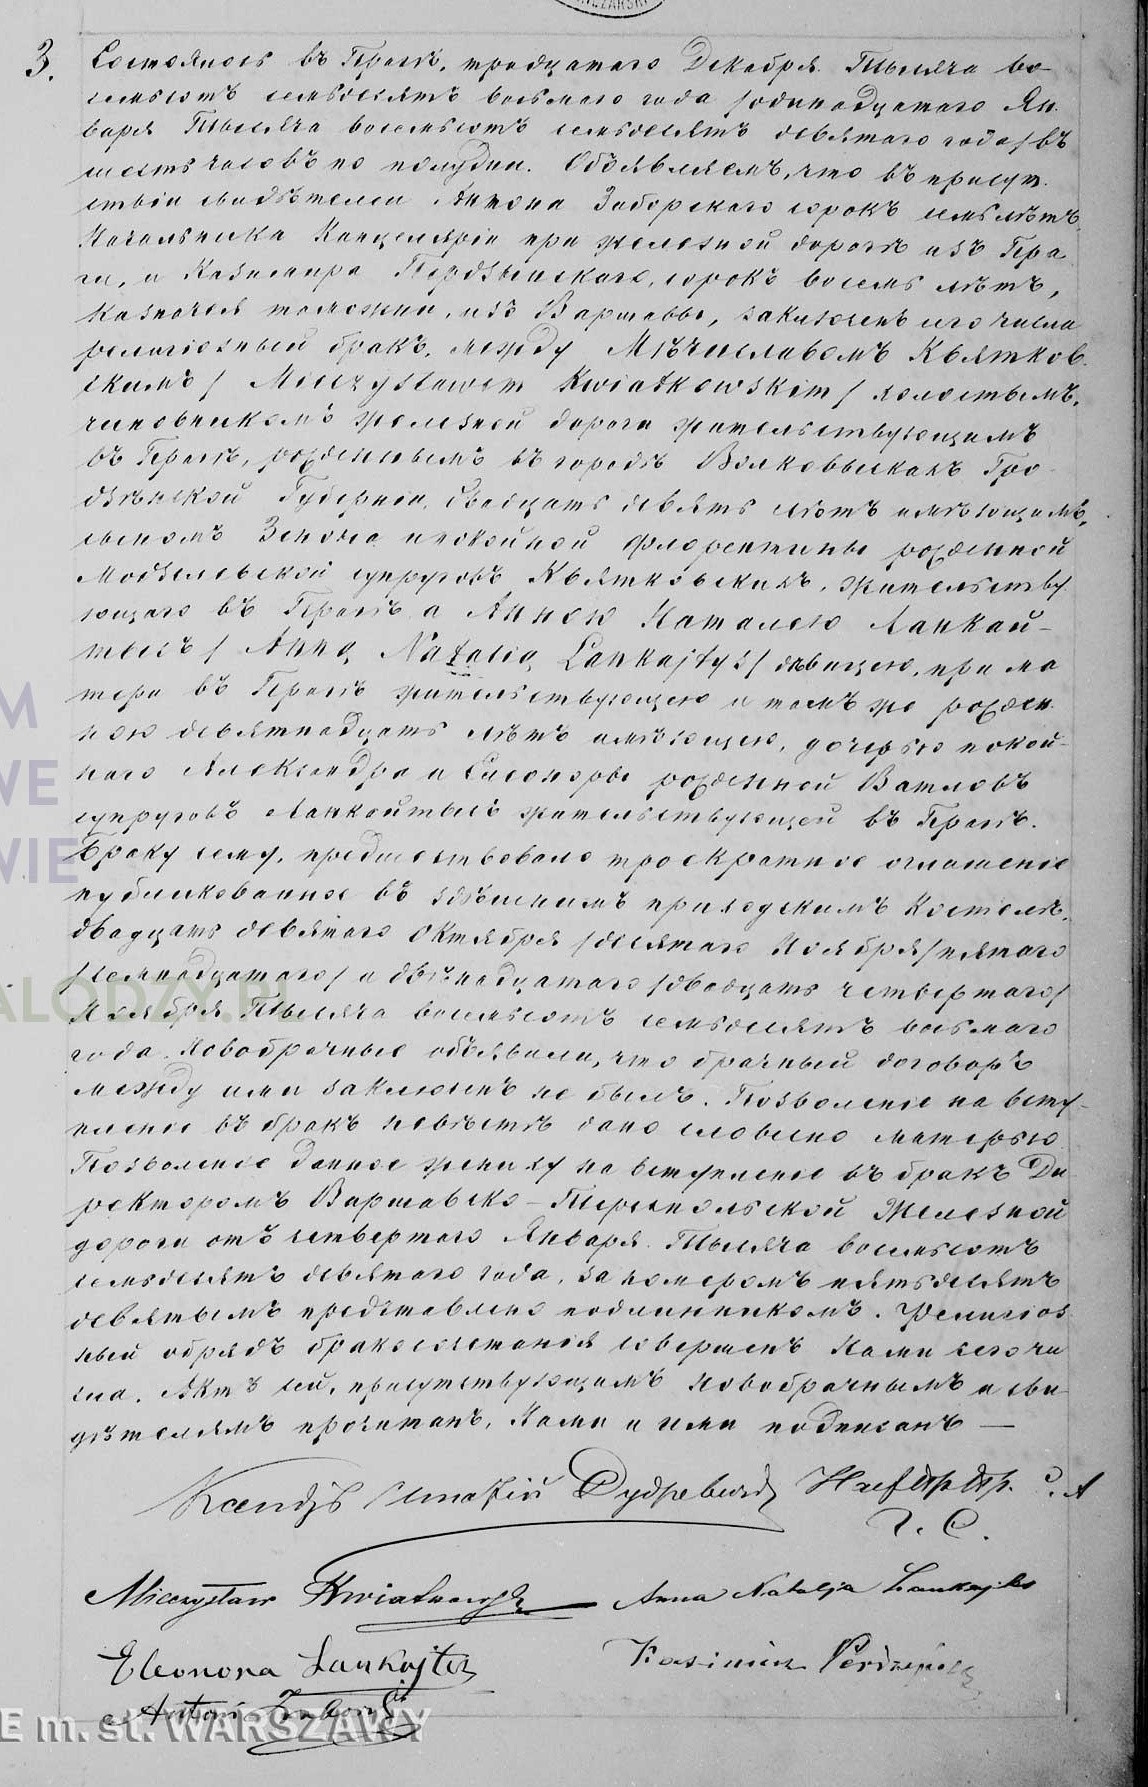 3.
Состоялось въ Прагѣ, тридцатаго Декабря Тысяча во-
семьсотъ семьдесятъ восьмаго года /одинадцатаго Ян
варя Тысяча восемьсотъ семьдесятъ девятаго года/ въ
шесть часовъ по полудни. Объявляемъ, что въ присут
ствіи свидѣтелей Антона Заборскаго сорокъ семь лѣтъ
Начальника Канцеляріи при железной дорогѣ изъ Пра
ги, и Казимира сорокъ восемь лѣтъ,
Казначея таможни, изъ Варшавы, заключенъ сего числа
религіозный бракъ, между Мѣчиславомъ Квятков
скимъ / Mieczysławem Kwiatkowskim / холостымъ,
чиновникомъ железной дороги жительствующимъ
въ Прагѣ, рожденнымъ въ городѣ Волковыскахъ Гро
дненской Губерніи, двадцать девять лѣтъ имѣющимъ,
сыномъ Зенона и покойной Флорентины рожденной
супруговъ Квятковскихъ, жительству
ющаго въ Прагѣ, а Анною Наталею Ланкай-
тысъ / Anną Natalią Lankajtys / дѣвицею, при ма
тери въ Прагѣ жительствующею и тамъ же рожден
ною девятнадцать лѣтъ имѣющею, дочерью покой-
наго Александра и Елеоноры рожденной Ватловъ
супруговъ Ланкайтысъ жительствующей въ Прагѣ.
Браку сему, предшествовало троекратное оглашеніе
публикованное въ здѣшнимъ приходскимъ Костелѣ,
двадцать девятаго Октября /десятаго Ноября/ пятаго
/семнадцатаго/ и двѣнадцатаго /двадцать четвертаго/
Ноября Тысяча восемьсотъ семьдесятъ восьмаго
года. Новобрачные объявили, что брачный договоръ
между ими заключенъ не былъ. Позволеніе на всту-
пленіе въ бракъ невѣстѣ дано словесно матерью
Позволеніе данное жениху на вступленіе въ бракъ Ди
ректоромъ Варшавско-Тереспольской Железной
дороги отъ четвертаго Января Тысяча восемьсотъ
семьдесятъ девятаго года, за номеромъ пятьдесятъ
девятымъ представлено подлинникомъ. Религіоз
ный обрядъ бракосочетанія совершенъ Нами сего чи
сла. Актъ сей, присутствующимъ новобрачнымъ и сви-
дѣтелямъ прочитанъ, Нами и ими подписанъ —
Г. С.
Mieczysław Kwiatkowski Anna Natalja Lankajtys
Eleonora Lankajtys Kazimierz
Antoni Zaborski
M
WE
WIE
ALODZY.PL
E m. st. WARSZAWY